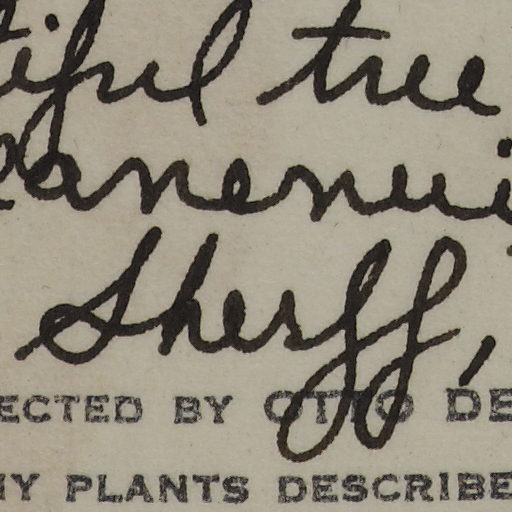 tiful tree
anenui
Sherff,
ECTED BY OTTO DE
NY PLANTS DESCRIBE